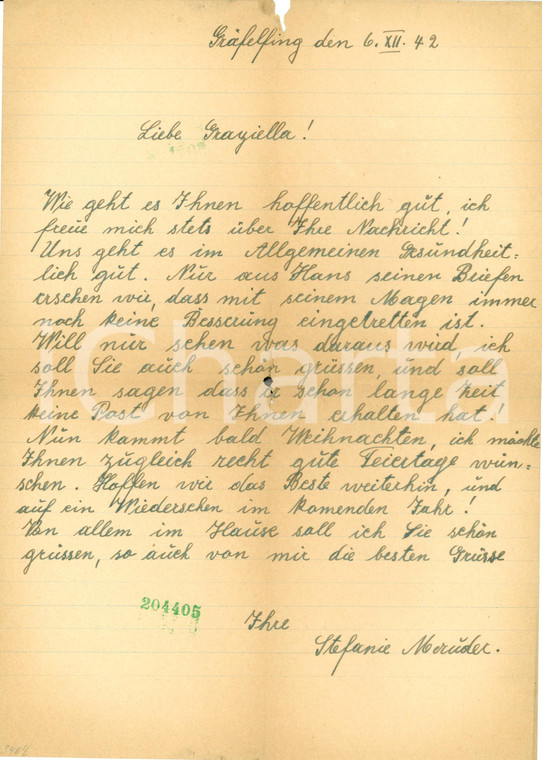 Gräfelfing den 6. XII. 42
Liebe Graziella!
Wie geht es Ihnen hoffentlich gut, ich
freue mich stets über Ihre Nachricht!
Uns geht es im Allgemeinen Gesundheit=
lich gut. Nur aus Hans seinen Briefen
ersehen wir, dass mit seinem Magen immer
noch keine Besserung eingetretten ist.
Will nur sehen was daraus wird, ich
soll Sie auch schön grüssen, und soll
Ihnen sagen dass er schon lange Zeit
keine Post von Ihnen erhalten hat!
Nun kommt bald Weihnachten, ich möchte
Ihnen zugleich recht gute Feiertage wün=
schen. Hoffen wir das Beste weiterhin, und
auf ein Wiedersehen im komenden Jahr!
Von allem im Hause soll ich Sie schön
grüssen, so auch von mir die besten Grüsse
204405
Ihre
Stefanie
iCharta